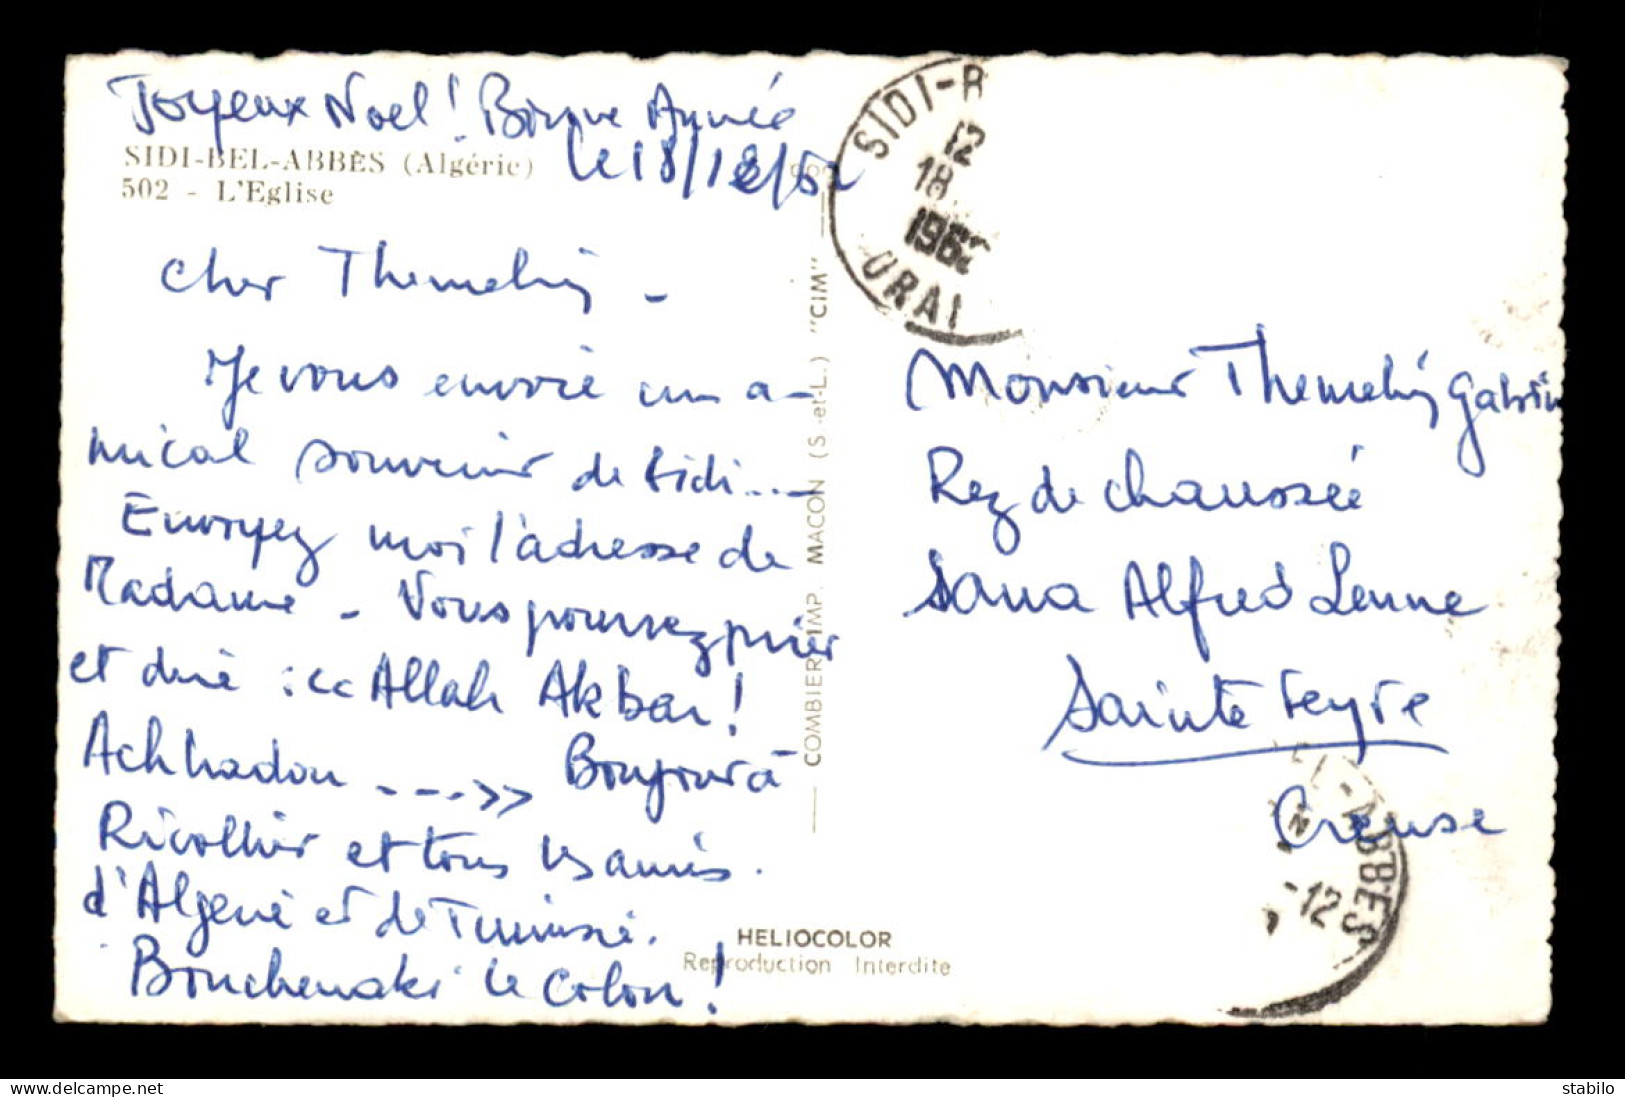 Joyeux Noel! Bonne Année
SIDI-BEL-ABBÈS (Algérie)
502 - L'Eglise
le 18/12/62
Cher Themelin -
Je vous envoie un a-
mical souvenir de Sidi...-
Envoyez moi l'adresse de
Madame - Vous pourrez prier
et dire : << Allah Akbar!
Achhadou ---->> Bonjour à
Ricollier et tous les amis.
d'Algérie et de Tunisie.
Bouchenaki le Colon!
COMBIER IMP. MACON (S.-et-L.) "CIM"
HELIOCOLOR
Reproduction Interdite
SIDI-B
12
18
1962
ORAN
Monsieur Themelin
Rez de chaussée
Sana Alfred Lenne
Sainte Feyre
Creuse
EL-ABBES
-12
delcampe
stabilo